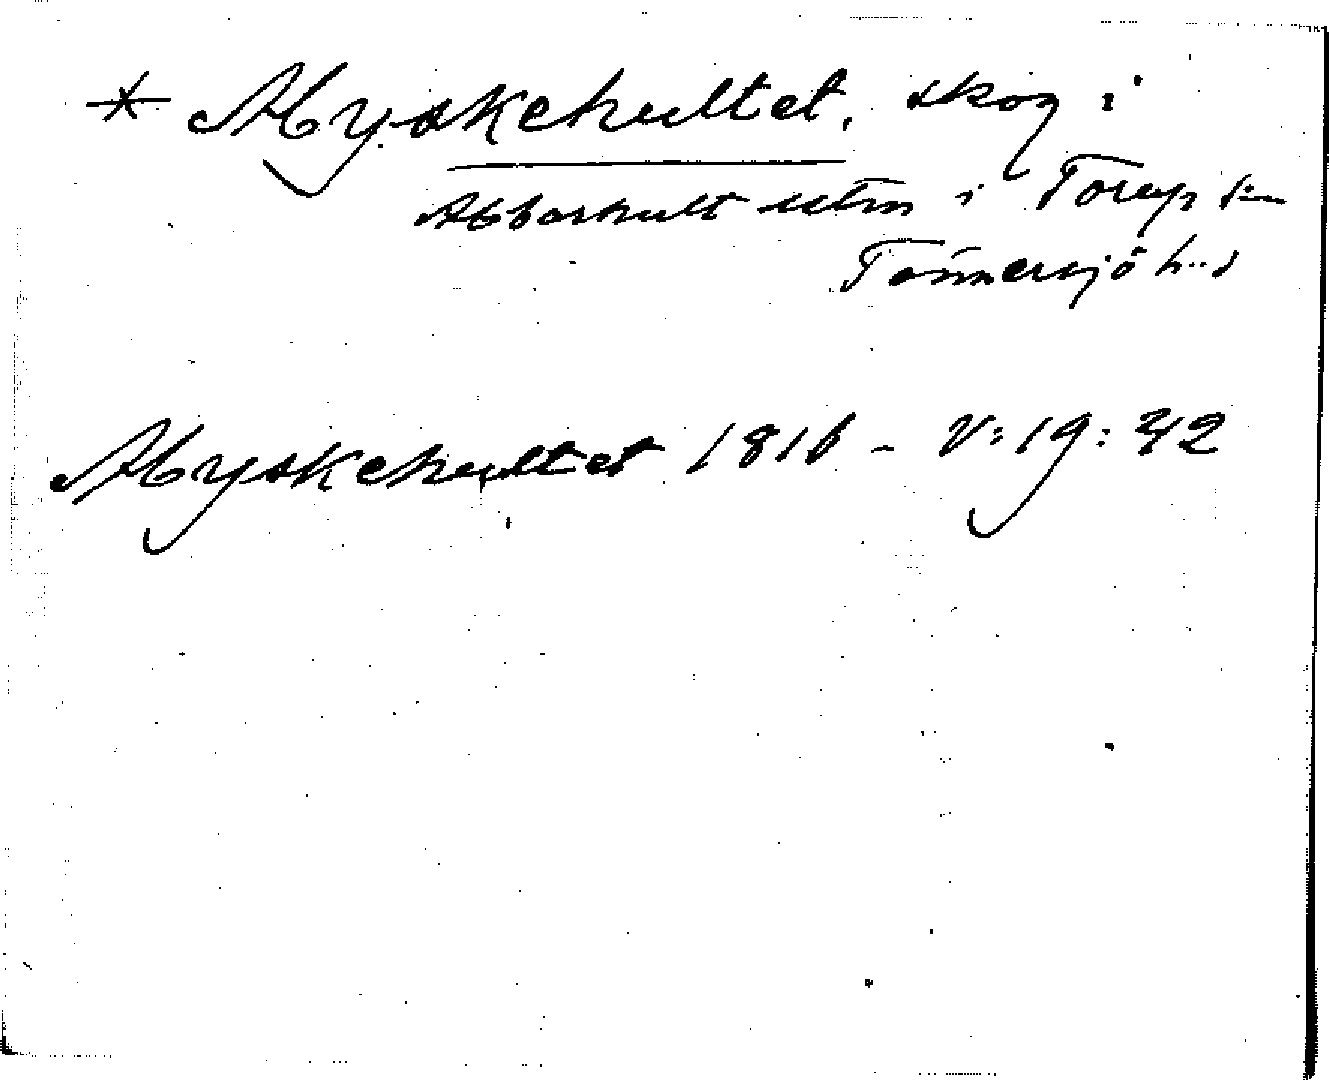 * Myskehultet, skog i
Abborhult utm i Torup sn
Tönnersjö hd
Myskehultet 1816 - V:19:42